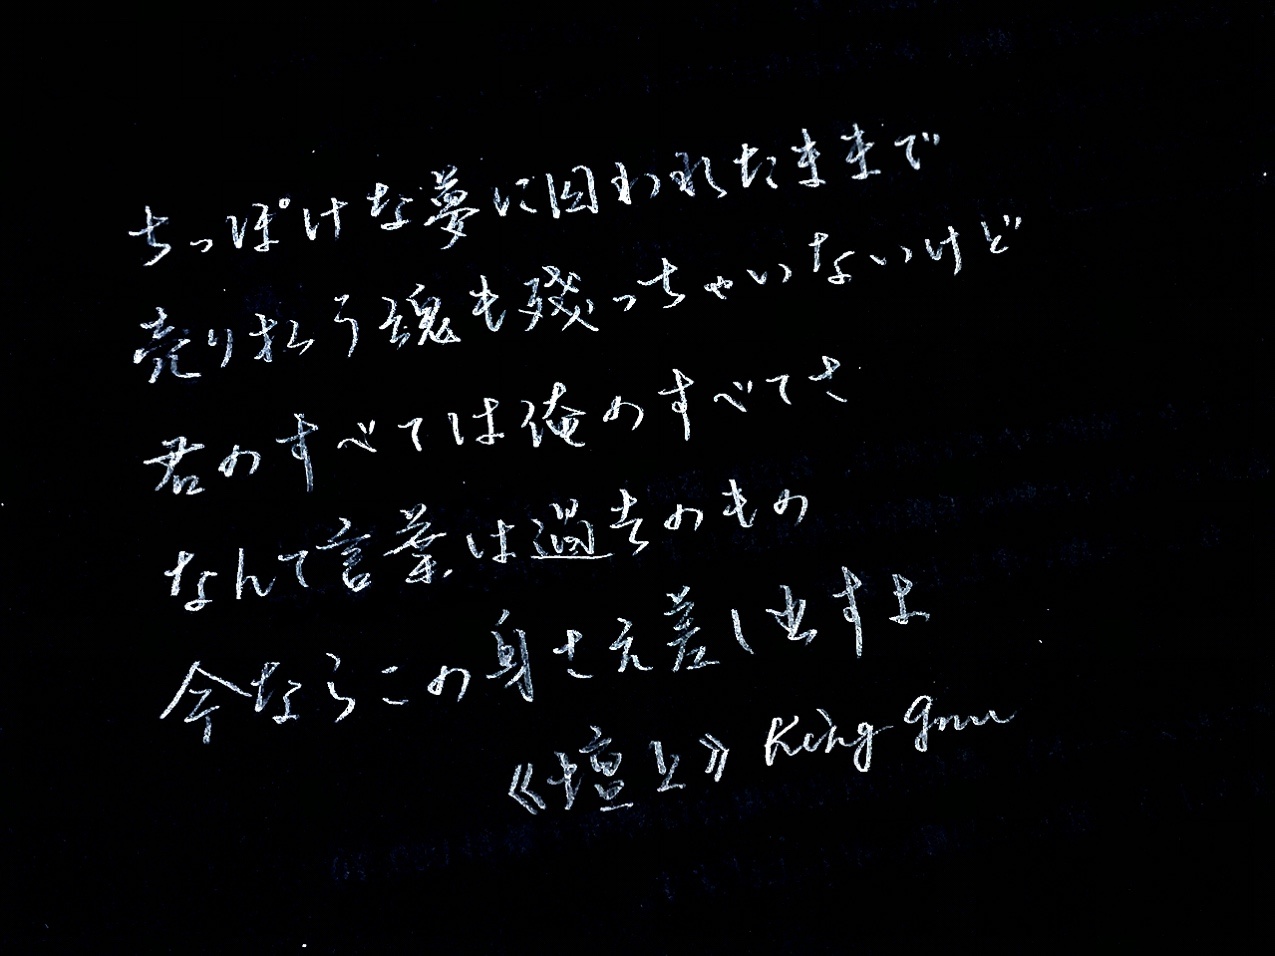 ちっぽけな夢に囚われたままで
売り払う魂も残っちゃいないけど
君のすべては俺のすべてさ
なんて言葉は過去のもの
今ならこの身さえ差し出すよ
《壇上》King gnu